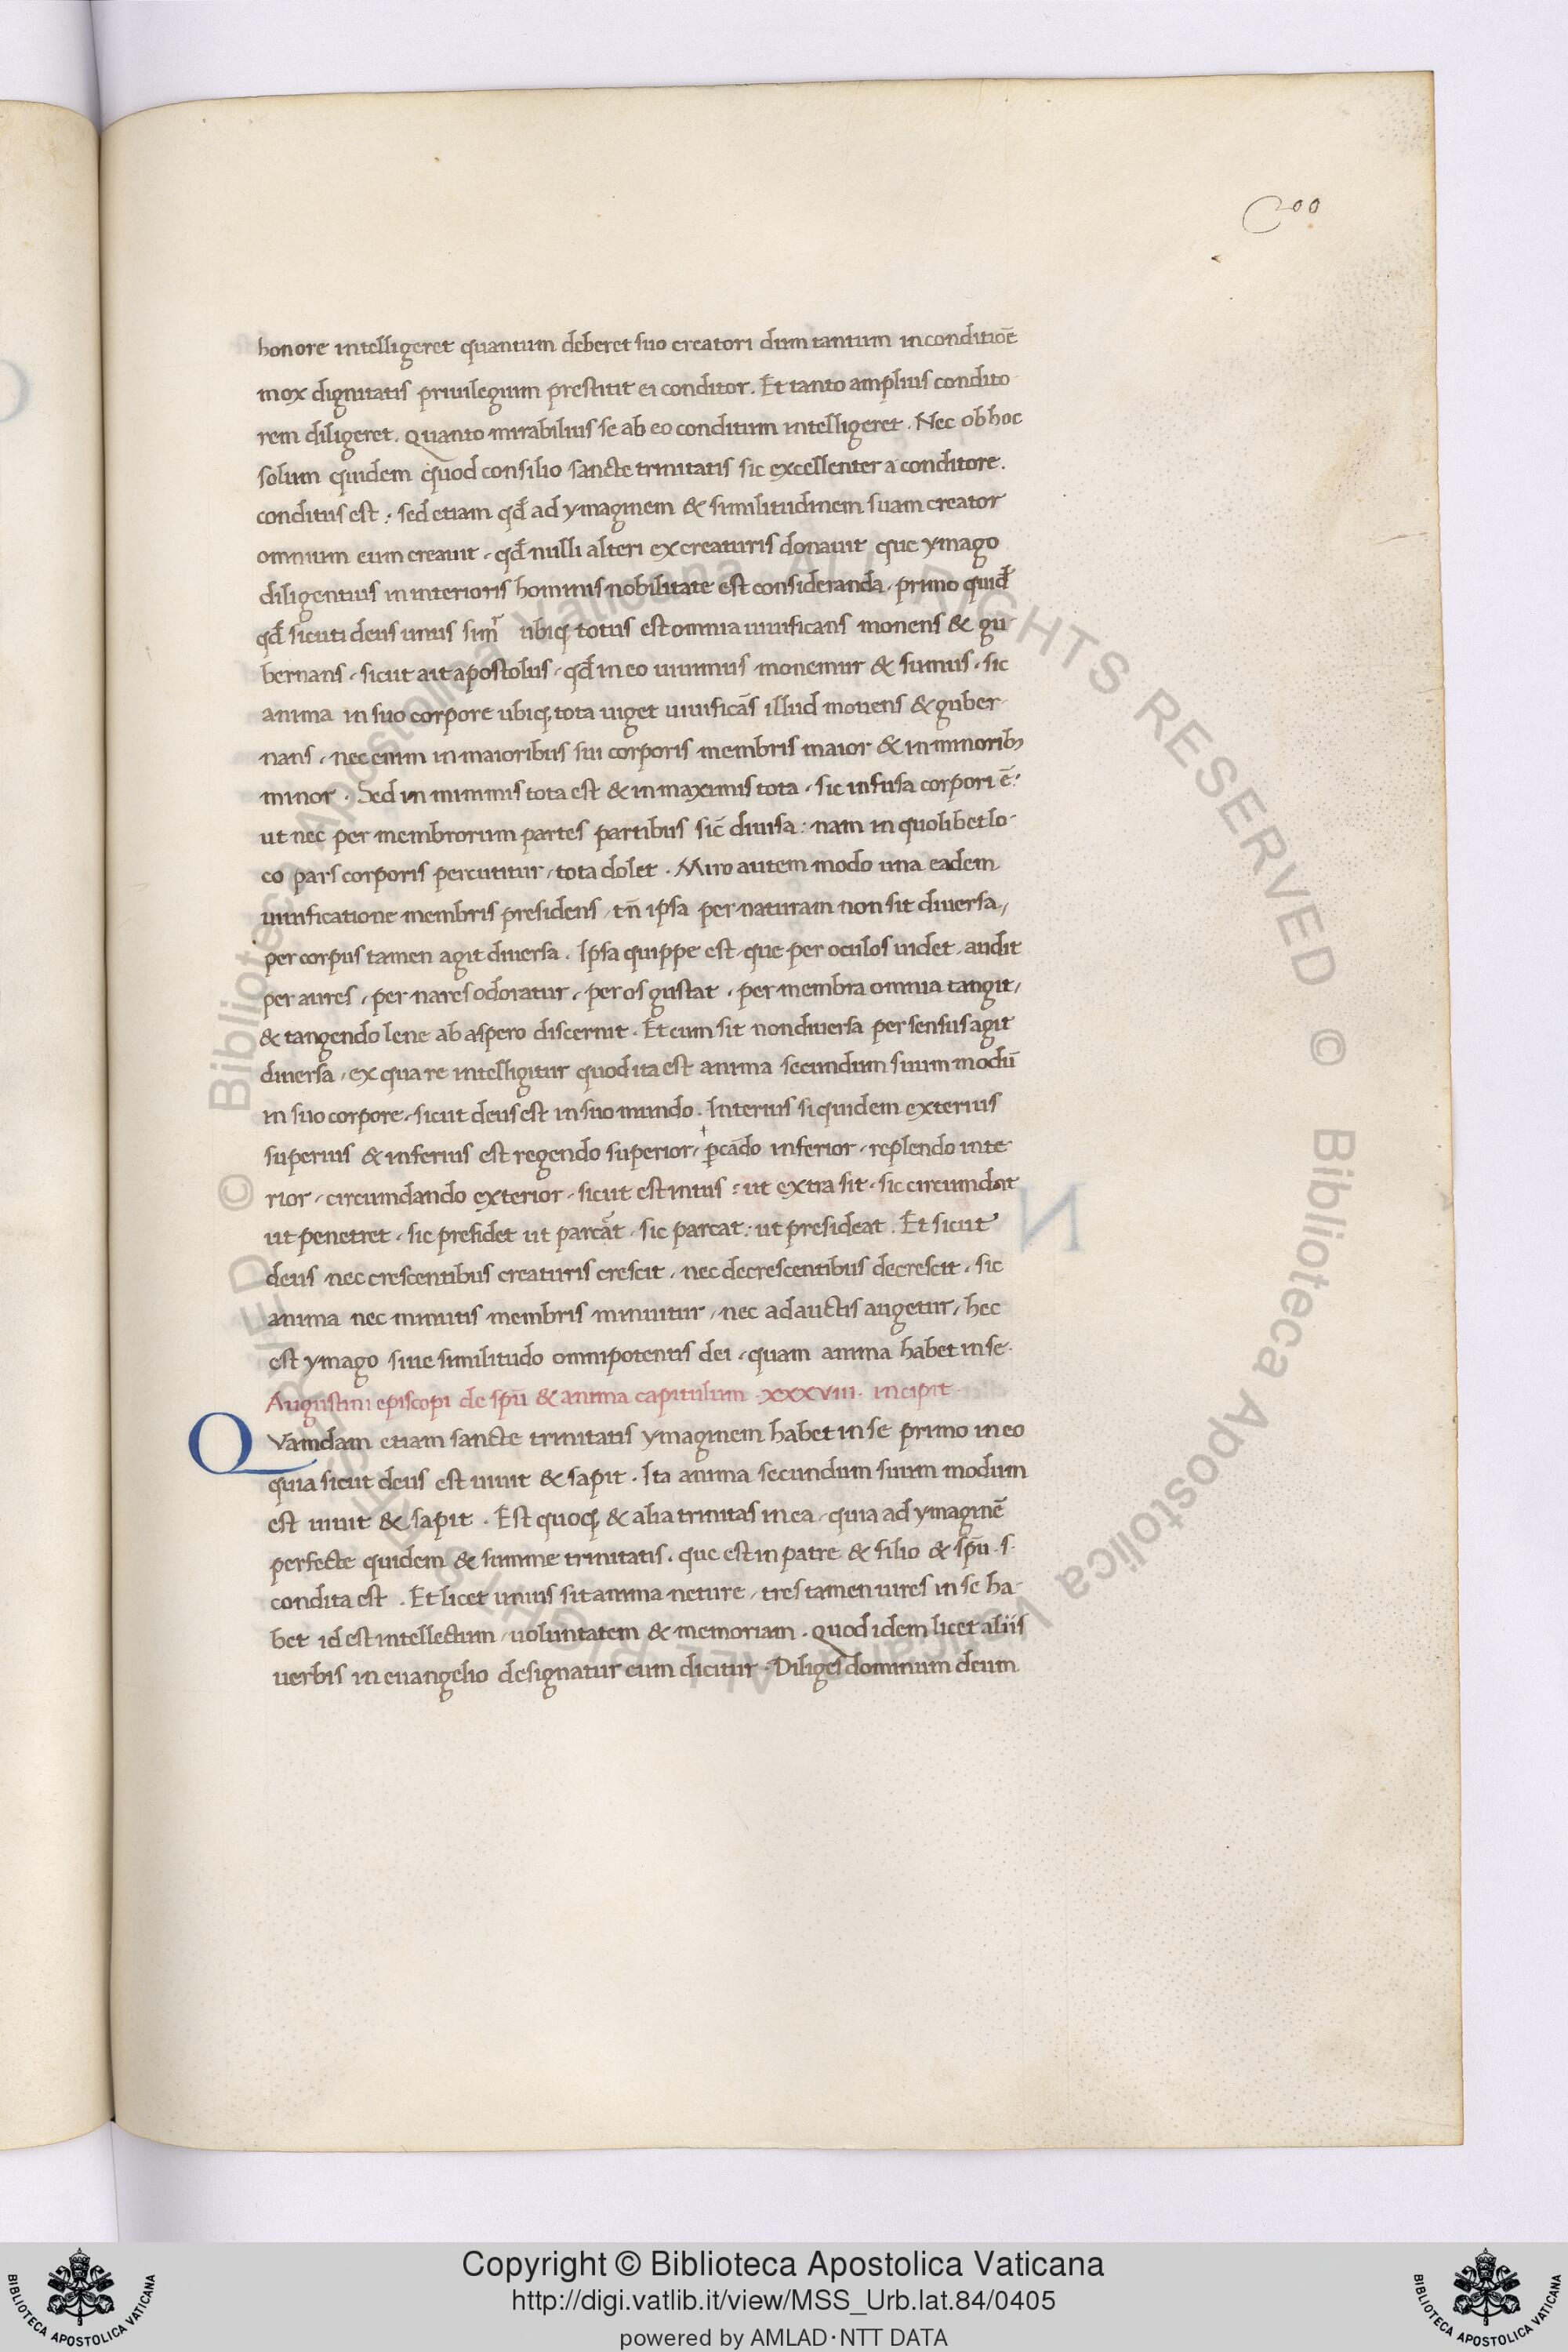 200
honore intelligeret quantum deberet suo creatori dum tantum in conditiōe
mox dignitatis priuilegium prestitit ei conditor. Et tanto amplius condito
rem diligeret. Quanto mirabilius se ab eo conditum intelligeret. Nec ob hoc
solum quidem quod consilio sancte trinitatis sic excellenter a conditore.
conditus est; sed etiam qđ ad ymaginem & similitudinem suam creator
omnium eum creauit. qđ nulli alteri ex creaturis donauit que ymago
diligentius in interioris hominis nobilitate est consideranda. primo quidē
qđ sicuti deus unus ubiqꝫ totus est omnia uiuificans mouens & gu-
bernans. sicut ait apostolus. qđ in eo uiuimus mouemur & sumus. sic
anima in suo corpore ubiqꝫ tota uiget uiuificās illud mouens & guber-
nans. nec enim in maioribus sui corporis membris maior & in minoribꝫ
minor. Sed in minimis tota est & in maximis tota. sic infusa corpori ē:
ut nec per membrorum partes partibus sic diuisa: nam in quolibet lo-
co pars corporis percutitur, tota dolet. Miro autem modo una eadem
uiuificatione membris presidens, tn̄ ipsa per naturam non sit diuersa,
per corpus tamen agit diuersa. Ipsa quippe est que per oculos uidet. audit
per aures, per nares odoratur, per os gustat. per membra omnia tangit,
& tangendo lene ab aspero discernit. Et cum sit non diuersa per sensus agit
diuersa, ex qua re intelligitur quod ita est anima secundum suum modū
in suo corpore, sicut deus est in suo mundo. Interius siquidem exterius
superius & inferius est regendo superior, ꝑcādo inferior, replendo inte
rior, circumdando exterior, sicut est intus: ut extra sit. sic circumdat
ut penetret, sic presidet ut parcat, sic parcat: ut presideat. Et sicut
deus nec crescentibus creaturis crescit, nec decrescentibus decrescit. sic
anima nec minutis membris minuitur, nec adauctis augetur, hec
est ymago siue similitudo omnipotentis dei, quam anima habet in se.
Augustini episcopi de spū & anima capitulum .xxxviii. incipit.
QVamdam etiam sancte trinitatis ymaginem habet in se primo in eo
quia sicut deus est uiuit & sapit. Ita anima secundum suum modum
est uiuit & sapit. Est quoqꝫ & alia trinitas in ea, quia ad ymaginē
perfecte quidem & summe trinitatis. que est in patre & filio & spū .s.
condita est. Et licet unius sit anima neture, tres tamen uires in se ha-
bet id est intellectum, uoluntatem & memoriam. Quod idem licet aliis
uerbis in euangelio designatur cum dicitur. Diliges dominum deum
Copyright © Biblioteca Apostolica Vaticana
http://digi.vatlib.it/view/MSS_Urb.lat.84/0405
powered by AMLAD·NTT DATA
BIBLIOTECA APOSTOLICA VATICANA
BIBLIOTECA APOSTOLICA VATICANA